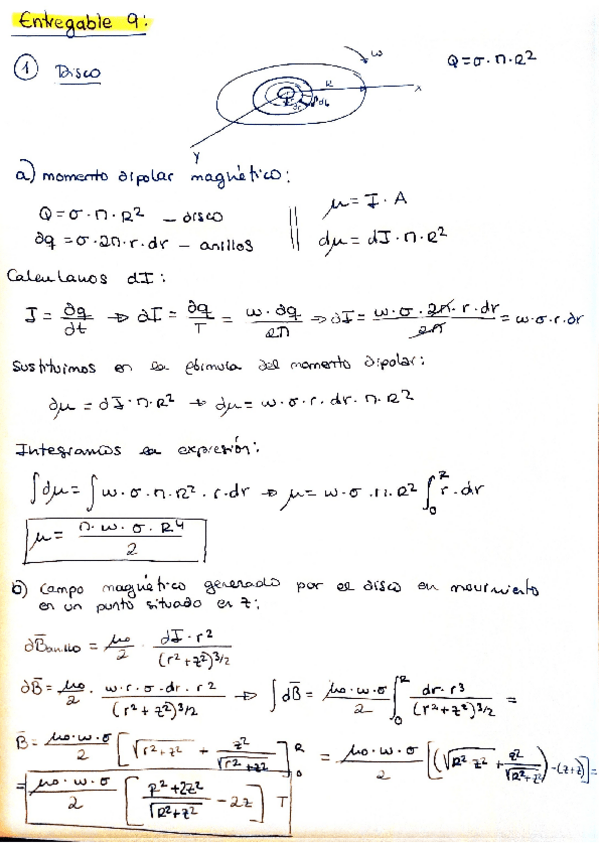 Entregable 9:
① Disco
ω
Q = σ·π·R²
R
x
y
a) momento dipolar magnético:
Q = σ·π·R² — disco
μ = I·A
∂q = σ·2π·r·dr — anillos
dμ = dI·π·R²
Calculamos dI:
I = ∂q/∂t → dI = ∂q/T = ω·∂q/2π → dI = ω·σ·2π·r·dr/2π = ω·σ·r·dr
Sustituimos en la fórmula del momento dipolar:
dμ = dI·π·R² → dμ = ω·σ·r·dr·π·R²
Integramos la expresión:
∫dμ = ∫ω·σ·π·R²·r·dr → μ = ω·σ·π·R² ∫₀ᴿ r·dr
μ = π·ω·σ·R⁴/2
b) Campo magnético generado por el disco en movimiento
en un punto situado en z:
dB̄anillo = μ₀/2 · dI·r²/(r²+z²)^3/2
dB̄ = μ₀/2 · ω·r·σ·dr·r²/(r²+z²)^3/2 → ∫dB̄ = μ₀·ω·σ/2 ∫₀ᴿ dr·r³/(r²+z²)^3/2 =
B̄ = μ₀·ω·σ/2 [√r²+z² + z²/√r²+z²]₀ᴿ = μ₀·ω·σ/2 [(√R² z² + z²/√R²+z²) - (z+z)] =
= μ₀·ω·σ/2 [R²+2z²/√R²+z² - 2z] T